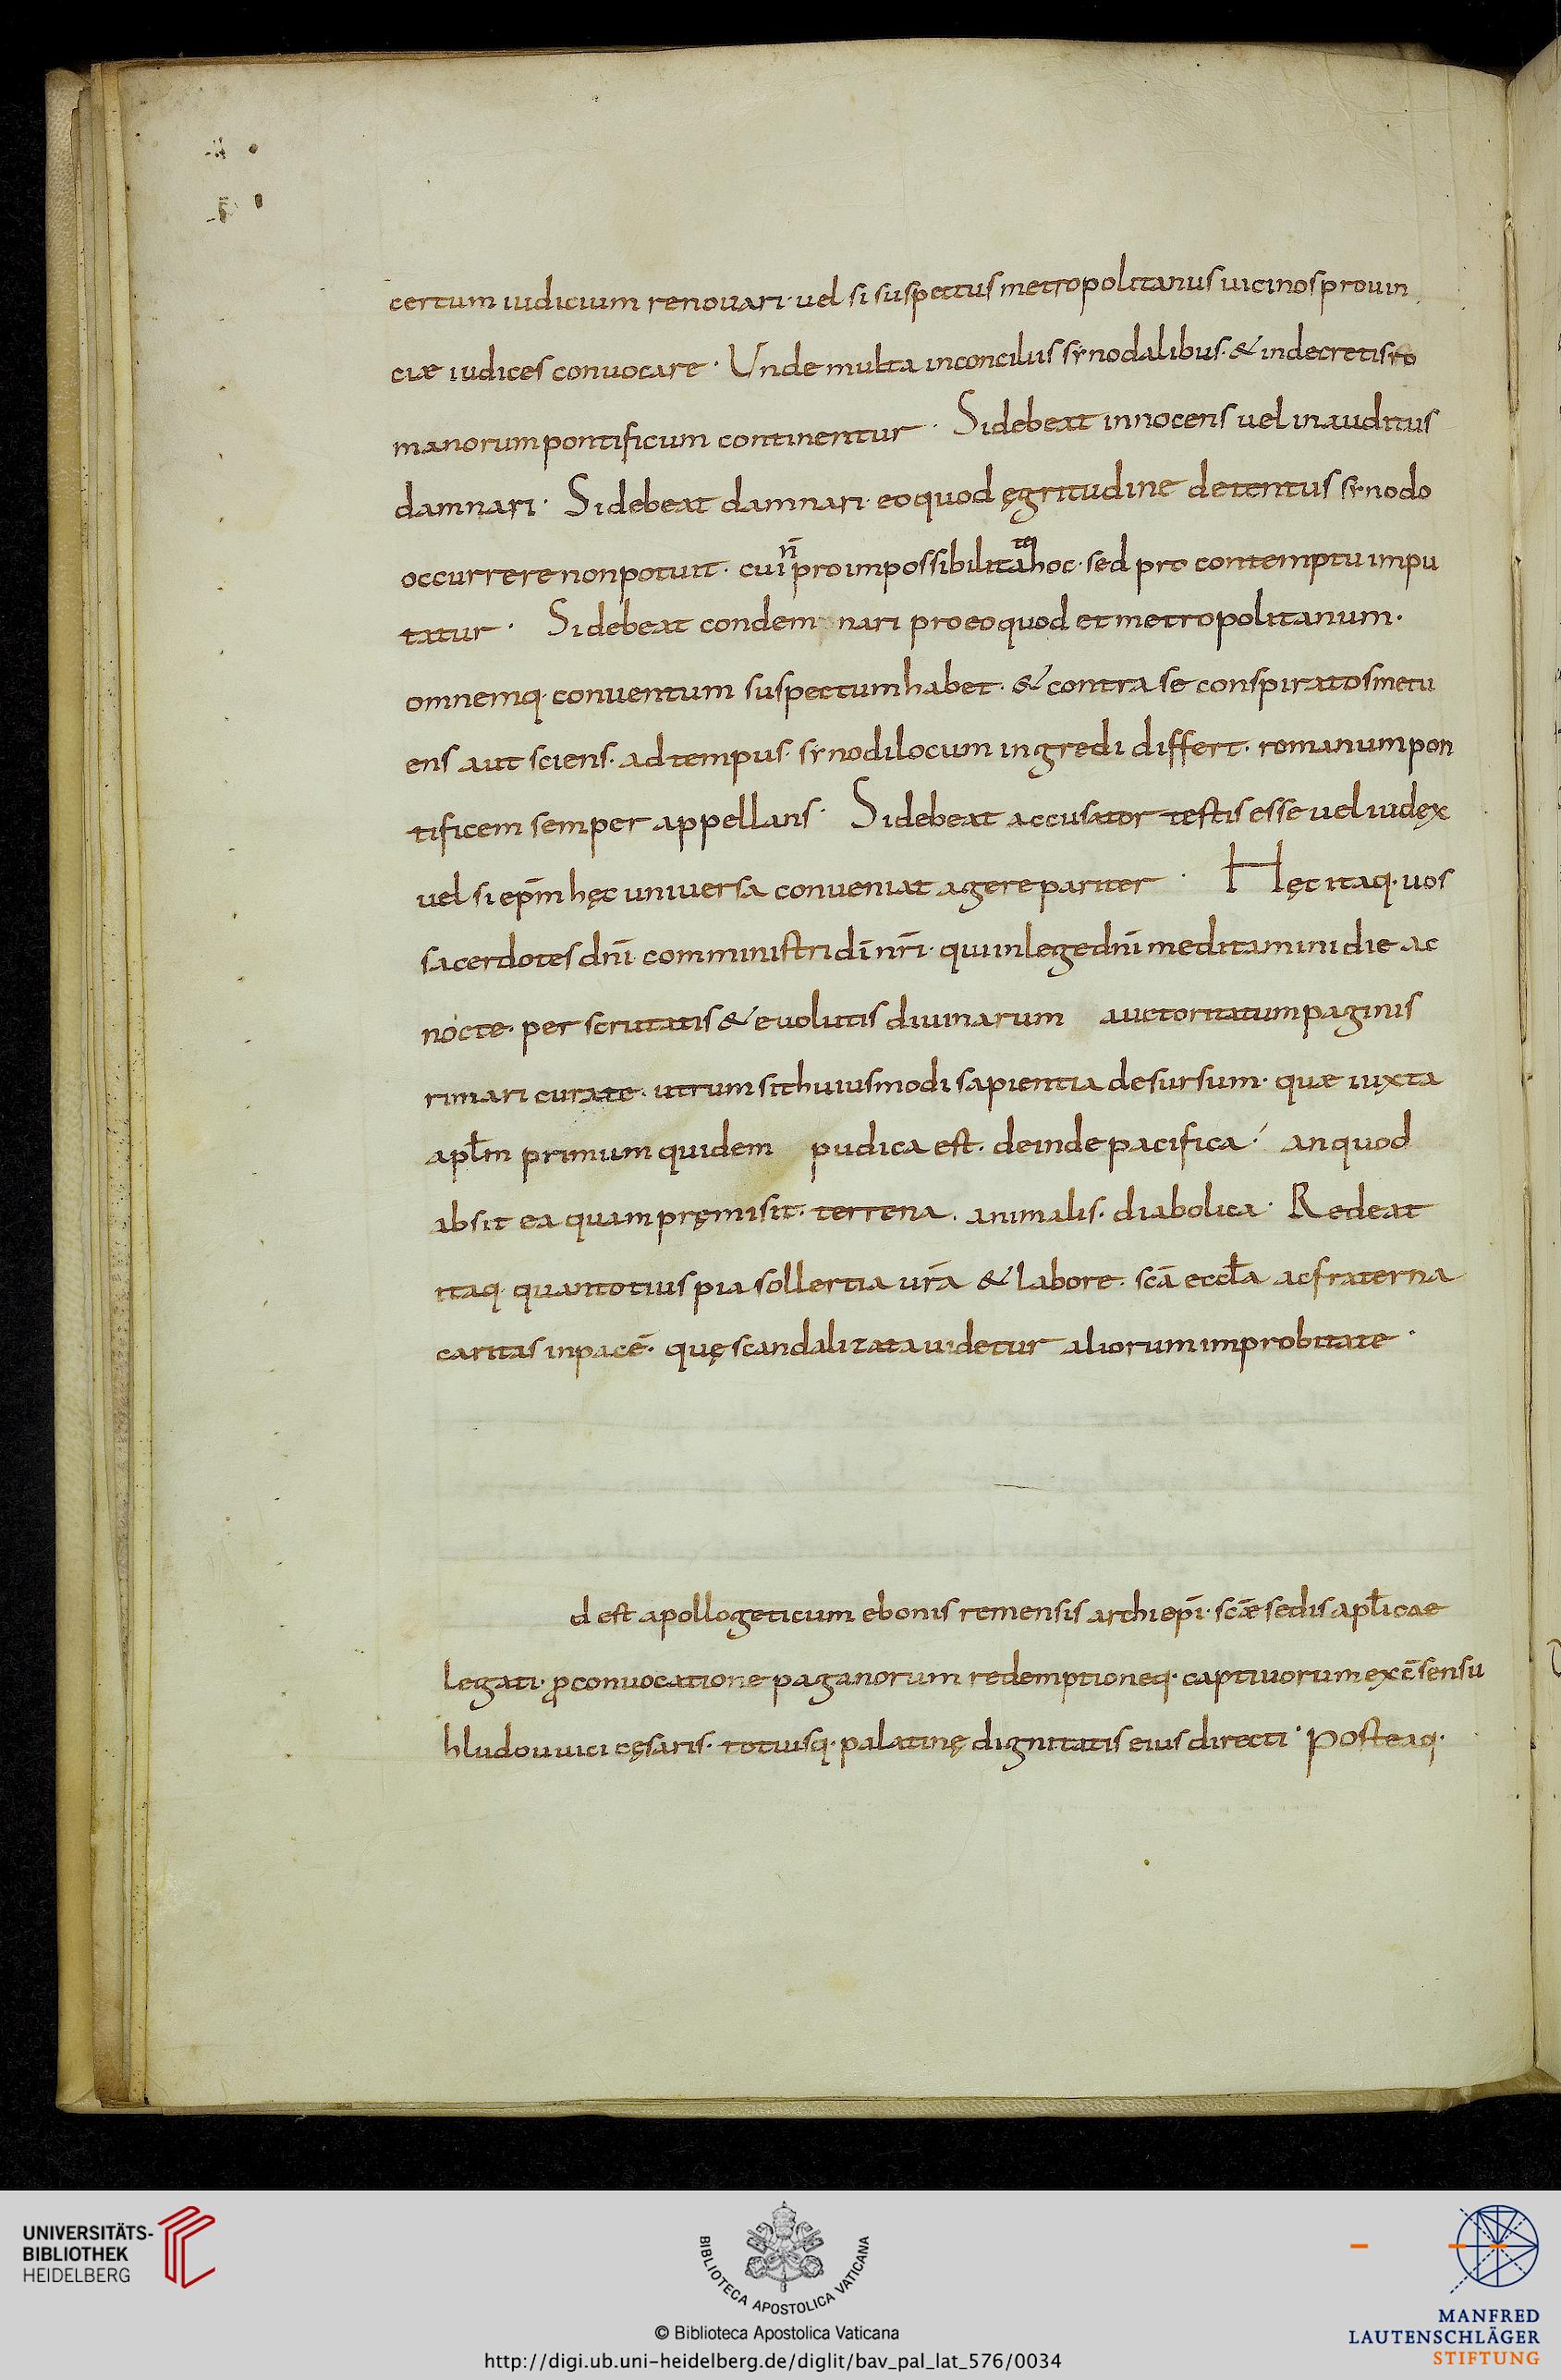 certum iudicium renouari· uel si suspectus metropolitanus uicinos prouin
ciæ iudices conuocare· Unde multa inconciliis sẏnodalibus· & indecretis ro
manorum pontificum continentur· Si debeat innocens uel inauditus
damnari· Si debeat damnari· eo quod ęgritudine detentus sẏnodo
occurrere non potuit· cui n̄ pro impossibilitate hoc· sed pro contemptu impu
tatur· Si debeat condem nari pro eo quod et metropolitanum·
omnemq· conuentum suspectum habet· & contra se conspiratos metu
ens aut sciens· ad tempus· sẏnodi locum ingredi differt· romanum pon
tificem semper appellans· Si debeat accusator testis esse uel iudęx
uel si ep̄m hęc uniuersa conueniat agere pariter· Hęc itaq· uos
sacerdotes dn̄i· comministri dī nr̄i· qui in lege dn̄i meditamini die ac
nocte· per scrutatis & euolutis diuinarum auctoritatum paginis
rimari curate· utrum sit huiusmodi sapientia desursum· quæ iuxta
apl̄m primum quidem pudica est· deinde pacifica· an quod
absit ea quam pręmisit· terrena· animalis· diabolica· Redeat
itaq· quantotius pia sollertia ur̄a & labore· scā eccl̄a ac fraterna
caritas in pacē· quę scandalizata uidetur aliorum improbitate·
d est apollogeticum ebonis remensis archiep̄i· scǣ sedis apl̄icae
legati· ꝓ conuocatione paganorum redemptioneq· captiuorum ex c̄sensu
hludouuici cęsaris· totiusq· palatinę dignitatis eius directi· Posteaq·
UNIVERSITÄTS-
BIBLIOTHEK
HEIDELBERG
BIBLIOTECA APOSTOLICA VATICANA
© Biblioteca Apostolica Vaticana
http://digi.ub.uni-heidelberg.de/diglit/bav_pal_lat_576/0034
MANFRED
LAUTENSCHLÄGER
STIFTUNG